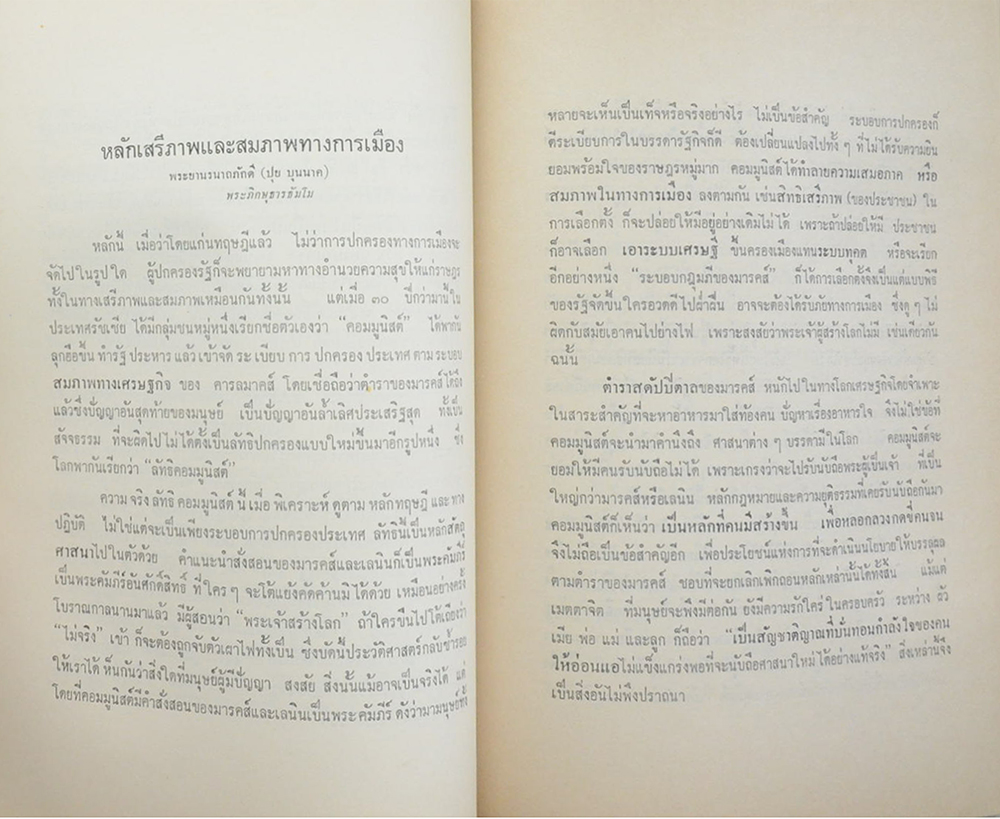 หลักเสรีภาพและสมภาพทางการเมือง
พระยานรนาถภักดี (ปุย บุนนาค)
พระภิกษุธารธัมโม
หลักนี้ เมื่อว่าโดยแก่นทฤษฎีแล้ว ไม่ว่าการปกครองทางการเมืองจะ
จัดไปในรูปใด ผู้ปกครองรัฐก็จะพยายามหาทางอำนวยความสุขให้แก่ราษฎร
ทั้งในทางเสรีภาพและสมภาพเหมือนกันทั้งนั้น แต่เมื่อ ๓๐ ปีกว่ามานี้ใน
ประเทศรัซเซีย ได้มีกลุ่มชนหมู่หนึ่งเรียกชื่อตัวเองว่า “คอมมูนิสต์” ได้พากัน
ลุกฮือขึ้น ทำรัฐ ประหาร แล้ว เข้าจัด ระ เบียบ การ ปกครอง ประเทศ ตาม ระบอบ
สมภาพทางเศรษฐกิจ ของ คารลมาคส์ โดยเชื่อถือว่าตำราของมารคส์ได้ถึง
แล้วซึ่งปัญญาอันสุดท้ายของมนุษย์ เป็นปัญญาอันล้ำเลิศประเสริฐสุด ทั้งเป็น
สัจจธรรม ที่จะผิดไปไม่ได้ตั้งเป็นลัทธิปกครองแบบใหม่ขึ้นมาอีกรูปหนึ่ง ซึ่ง
โลกพากันเรียกว่า “ลัทธิคอมมูนิสต์”
ความ จริง ลัทธิ คอมมูนิสต์ นี้ เมื่อ พิเคราะห์ ดูตาม หลักทฤษฎี และ ทาง
ปฏิบัติ ไม่ใช่แต่จะเป็นเพียงระบอบการปกครองประเทศ ลัทธินี้เป็นหลักลัทธิ
ศาสนาไปในตัวด้วย คำแนะนำสั่งสอนของมารคส์และเลนินก็เป็นพระคัมภีร์
เป็นพระคัมภีร์อันศักดิ์สิทธิ์ ที่ใคร ๆ จะโต้แย้งคัดค้านมิได้ด้วย เหมือนอย่างครั้ง
โบราณกาลนานมาแล้ว มีผู้สอนว่า “พระเจ้าสร้างโลก” ถ้าใครขืนไปโต้เถียงว่า
“ไม่จริง” เข้า ก็จะต้องถูกจับตัวเผาไฟทั้งเป็น ซึ่งบัดนี้ประวัติศาสตร์กลับชำระสอบ
ให้เราได้ เห็นกันว่าสิ่งใดที่มนุษย์ผู้มีปัญญา สงสัย สิ่งนั้นแม้อาจเป็นจริงได้ แต่
โดยที่คอมมูนิสต์มีคำสั่งสอนของมารคส์และเลนินเป็นพระ คัมภีร์ ดังว่ามามนุษย์ทั้ง
หลายจะเห็นเป็นเท็จหรือจริงอย่างไร ไม่เป็นข้อสำคัญ ระบอบการปกครองก็
ดีระเบียบการในบรรดารัฐกิจก็ดี ต้องเปลี่ยนแปลงไปทั้ง ๆ ที่ไม่ได้รับความยิน
ยอมพร้อมใจของราษฎรหมู่มาก คอมมูนิสต์ได้ทำลายความเสมอภาค หรือ
สมภาพในทางการเมือง ลงตามกัน เช่นสิทธิเสรีภาพ (ของประชาชน) ใน
การเลือกตั้ง ก็จะปล่อยให้มีอยู่อย่างเดิมไม่ได้ เพราะถ้าปล่อยให้มี ประชาชน
ก็อาจเลือก เอาระบบเศรษฐี ขึ้นครองเมืองแทนระบบทุคต หรือจะเรียก
อีกอย่างหนึ่ง “ระบอบกฎุมภีของมารคส์” ก็ได้การเลือกตั้งจึงเป็นแต่แบบพิธี
ของรัฐจัดขึ้นใครอวดดีไปฝ่าฝืน อาจจะต้องได้รับภัยทางการเมือง ซึ่งดู ๆ ไม่
ผิดกับสมัยเอาคนไปย่างไฟ เพราะสงสัยว่าพระเจ้าผู้สร้างโลกไม่มี เช่นเดียวกัน
ฉนั้น
ตำราสดัปปิตาลของมารคส์ หนักไปในทางโลกเศรษฐกิจโดยจำเพาะ
ในสาระสำคัญที่จะหาอาหารมาใส่ท้องคน ปัญหาเรื่องอาหารใจ จึงไม่ใช่ข้อที่
คอมมูนิสต์จะนำมาคำนึงถึง ศาสนาต่าง ๆ บรรดามีในโลก คอมมูนิสต์จะ
ยอมให้มีคนรับนับถือไม่ได้ เพราะเกรงว่าจะไปรับนับถือพระผู้เป็นเจ้า ที่เป็น
ใหญ่กว่ามารคส์หรือเลนิน หลักกฎหมายและความยุติธรรมที่เคยรับนับถือกันมา
คอมมูนิสต์ก็เห็นว่า เป็นหลักที่คนมีสร้างขึ้น เพื่อหลอกลวงกดขี่คนจน
จึงไม่ถือเป็นข้อสำคัญอีก เพื่อประโยชน์แห่งการที่จะดำเนินนโยบายให้บรรลุผล
ตามตำราของมารคส์ ชอบที่จะยกเลิกเพิกถอนหลักเหล่านั้นได้ทั้งสิ้น แม้แต่
เมตตาจิต ที่มนุษย์จะพึงมีต่อกัน ยังมีความรักใคร่ในครอบครัว ระหว่าง ผัว
เมีย พ่อ แม่ และลูก ก็ถือว่า “เป็นสัญชาติญาณที่บั่นทอนกำลังใจของคน
ให้อ่อนแอไม่แข็งแกร่งพอที่จะนับถือศาสนาใหม่ได้อย่างแท้จริง” สิ่งเหล่านี้จึง
เป็นสิ่งอันไม่พึงปราถนา